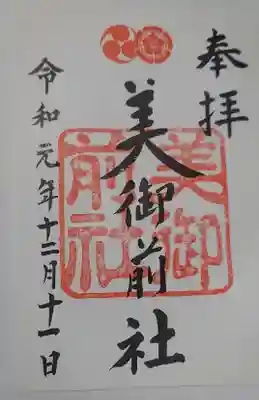 奉拝
美御前社
美御前社
令和元年十二月十一日